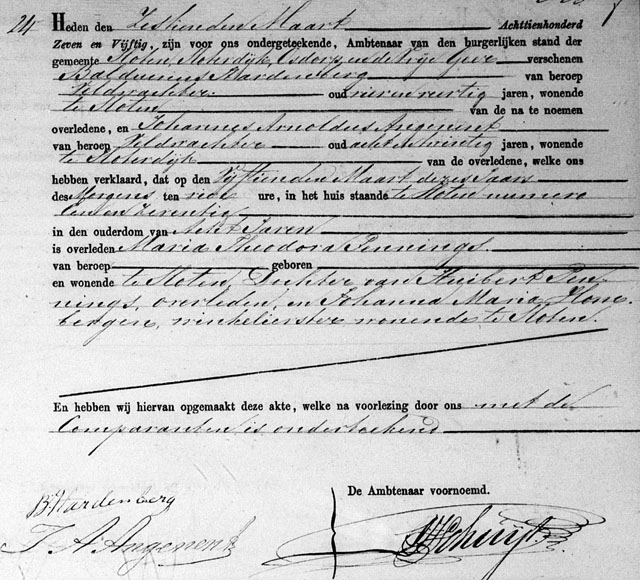 24 Heden den Zestienden Maart Achttienhonderd
Zeven en Vijftig, zijn voor ons ondergeteekende, Ambtenaar van den burgerlijken stand der
gemeente Sloten, Sloterdijk, Osdorp en de Vrije Geer verschenen
Balduinus Hardenberg van beroep
Veldwachter oud vierenveertig jaren, wonende
te Sloten van de na te noemen
overledene, en Johannes Arnoldus Angenent
van beroep Veldwachter oud jaren, wonende
te Sloterdijk van de overledene, welke ons
hebben verklaard, dat op den Vijftienden Maart dezes Jaars
des Morgens ten vier ure, in het huis staande te Sloten numero
Een en Zeventig
in den ouderdom van Acht Jaren
is overleden Maria Theodora Pennings
van beroep geboren
en wonende te Sloten, Dochter van Huibert Pen-
nings, overleden, en Johanna Maria
bergen, winkelierster wonende te Sloten.
En hebben wij hiervan opgemaakt deze akte, welke na voorlezing door ons met de
Comparanten is onderteekend
De Ambtenaar voornoemd.
B. Hardenberg
J A Angenent